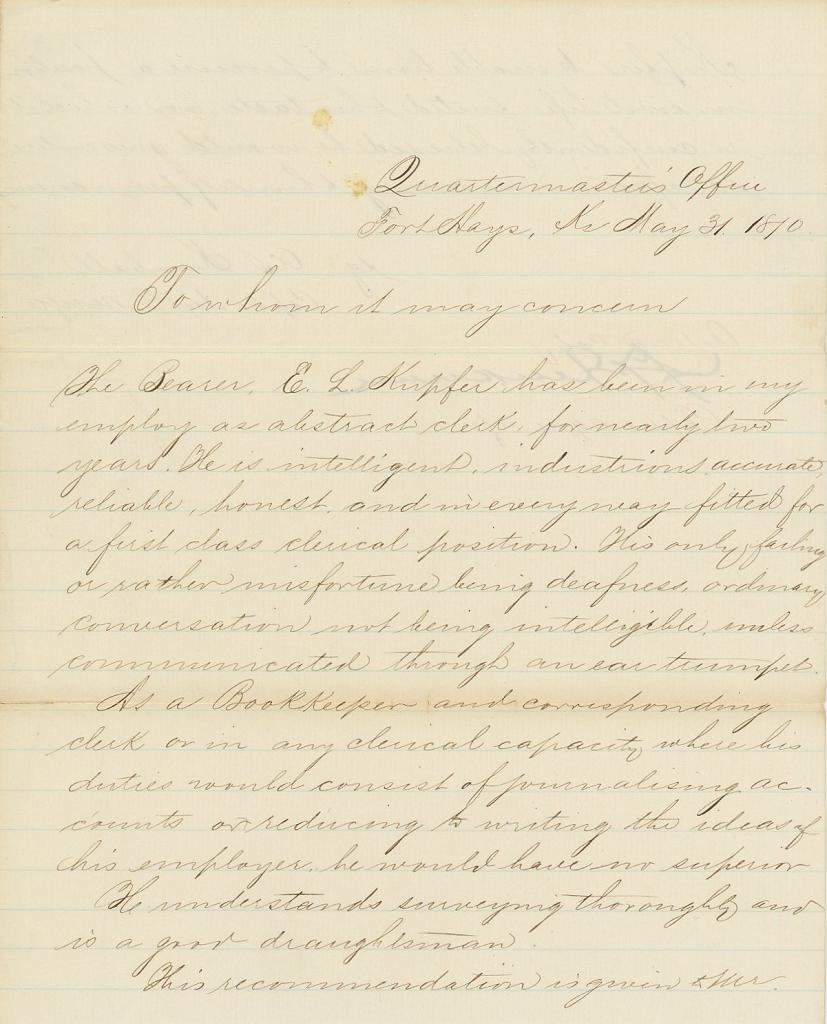 Quartermaster's Office
Fort Hays, Ks May 31 1870
To whom it may concern
The Bearer, E. L. Kupfer has been in my
employ as abstract clerk, for nearly two
years. He is intelligent, industrious, accurate,
reliable, honest, and in every way fitted for
a first class clerical position. His only failing
or rather misfortune being deafness, ordinary
conversation not being intelligible, unless
communicated through an ear trumpet.
As a Bookkeeper and corresponding
clerk or in any clerical capacity where his
duties would consist of journalising ac-
counts or reducing to writing the ideas of
his employer, he would have no superior
He understands surveying thoroughly and
is a good draughtsman.
This recommendation is given to Mr.